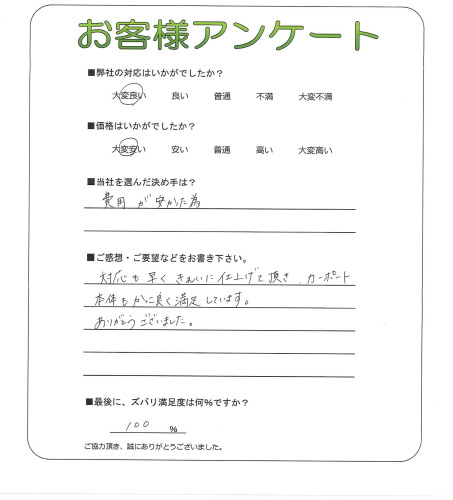 お客様アンケート
■弊社の対応はいかがでしたか？
大変良い 良い 普通 不満 大変不満
■価格はいかがでしたか？
大変安い 安い 普通 高い 大変高い
■当社を選んだ決め手は？
費用が安かった為
■ご感想・ご要望などをお書き下さい。
対応も早くきれいに仕上げて頂き、カーポート
本体も 良く満足しています。
ありがとうございました。
■最後に、ズバリ満足度は何%ですか？
100 %
ご協力頂き、誠にありがとうございました。